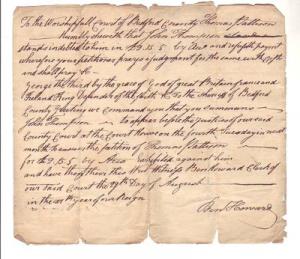 To the Worshipfull Court of Bedford County Thomas Patterson
Humbly sheweth that John Thompson
stands indebted to him in £ 5 by acco and refuseth paymt
wherefore your petitioner prays Judgment for the same with Costs
and shall pray &c
George the third by the grace of God of great Britain france and
Ireland King Defender of the faith &c To the Sheriff of Bedford
County Greeting we command you that you summons
John Thompson to appear before the Justices of our said
County Court at the Court House on the fourth Tuesday in next
month to answer the petition of Thomas Patterson
for £ 5 by Acco exhibited against him
and have then there this Writ Witness Ben Howard Clerk of
our said Court the Day of August
in the year of our Reign
Ben Howard